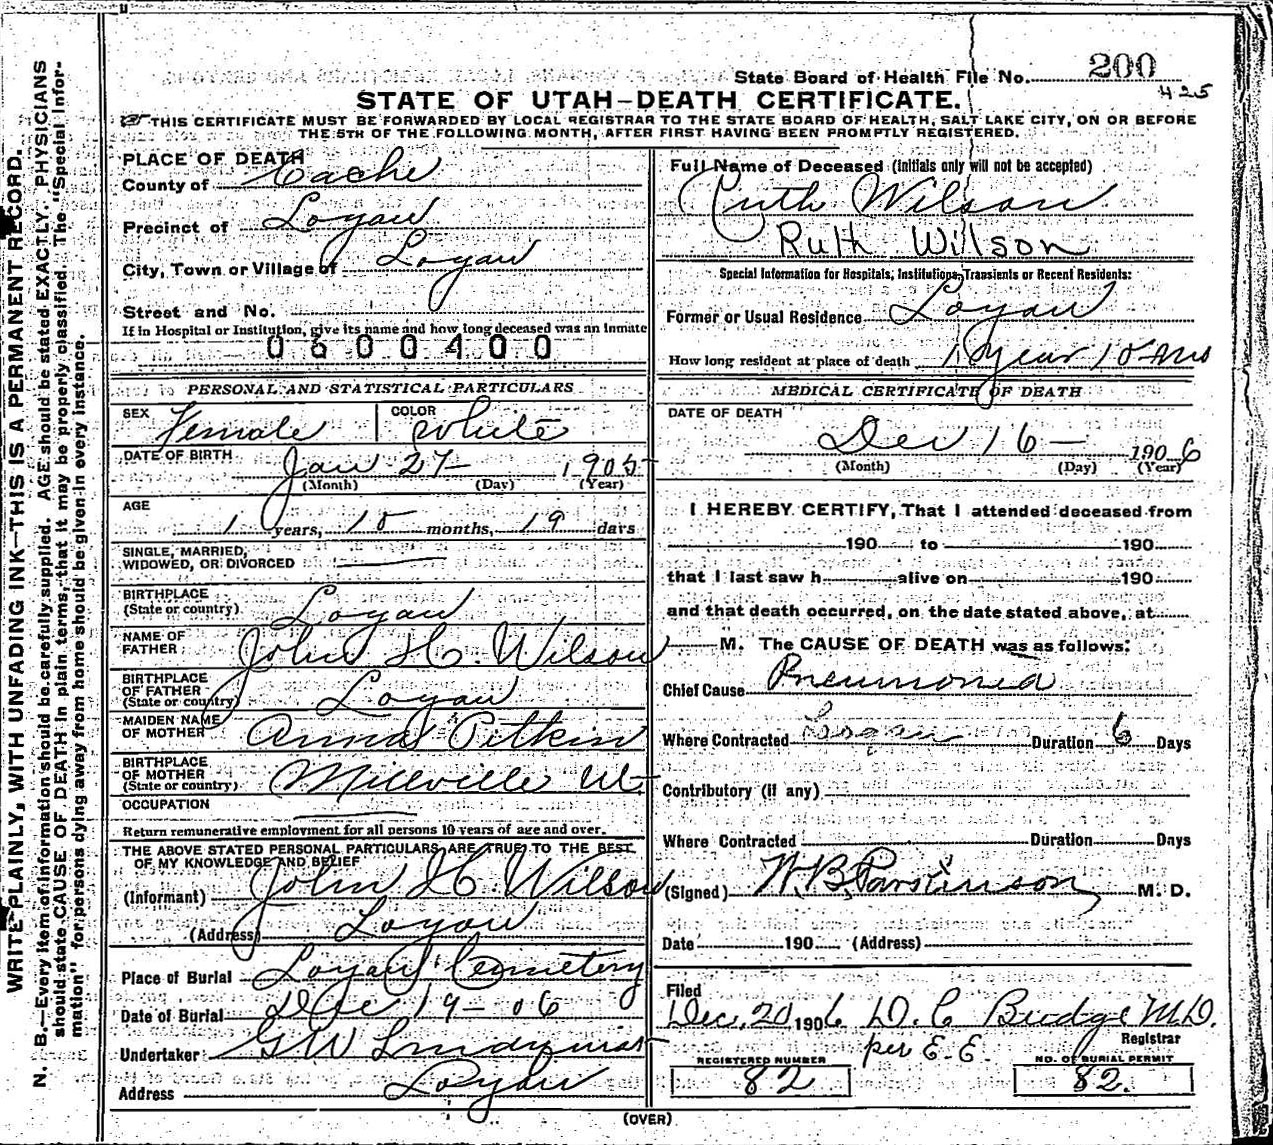 State Board of Health File No. 200
425
STATE OF UTAH—DEATH CERTIFICATE.
THIS CERTIFICATE MUST BE FORWARDED BY LOCAL REGISTRAR TO THE STATE BOARD OF HEALTH, SALT LAKE CITY, ON OR BEFORE
THE 5TH OF THE FOLLOWING MONTH, AFTER FIRST HAVING BEEN PROMPTLY REGISTERED.
WRITE PLAINLY, WITH UNFADING INK—THIS IS A PERMANENT RECORD.
N. B.—Every item of information should be carefully supplied. AGE should be stated EXACTLY. PHYSICIANS
should state CAUSE OF DEATH in plain terms, that it may be properly classified. The "Special Infor-
mation" for persons dying away from home should be given in every instance.
PLACE OF DEATH
County of Cache
Precinct of Logan
City, Town or Village of Logan
Street and No.
If in Hospital or Institution, give its name and how long deceased was an inmate
0300400
PERSONAL AND STATISTICAL PARTICULARS
SEX Female COLOR White
DATE OF BIRTH Jan 27 1905
(Month) (Day) (Year)
AGE
1 years, 10 months, 19 days
SINGLE, MARRIED,
WIDOWED, OR DIVORCED
BIRTHPLACE
(State or country) Logan
NAME OF
FATHER John H. Wilson
BIRTHPLACE
OF FATHER
(State or country) Logan
MAIDEN NAME
OF MOTHER Anna Pitkin
BIRTHPLACE
OF MOTHER
(State or country) Millville Ut
OCCUPATION
Return remunerative employment for all persons 10 years of age and over.
THE ABOVE STATED PERSONAL PARTICULARS ARE TRUE TO THE BEST
OF MY KNOWLEDGE AND BELIEF
(Informant) John H. Wilson
(Address) Logan
Place of Burial Logan Cemetery
Date of Burial Dec 19-06
Undertaker GW Lindquist
Address Logan
Full Name of Deceased (initials only will not be accepted)
Ruth Wilson
Ruth Wilson
Special Information for Hospitals, Institutions, Transients or Recent Residents:
Former or Usual Residence Logan
How long resident at place of death 1 year 10 mos
MEDICAL CERTIFICATE OF DEATH
DATE OF DEATH
Dec 16 — 1906
(Month) (Day) (Year)
I HEREBY CERTIFY, That I attended deceased from
190 to 190
that I last saw h alive on 190
and that death occurred, on the date stated above, at
M. The CAUSE OF DEATH was as follows:
Chief Cause Pneumonia
Where Contracted Logan Duration 6 Days
Contributory (if any)
Where Contracted Duration Days
(Signed) W.B. Parkinson, M. D.
Date 190 (Address)
Filed
Dec. 20 1906 D. C Budge M.D.
per E. E. Registrar
REGISTERED NUMBER
82
NO. OF BURIAL PERMIT
82.
(OVER)